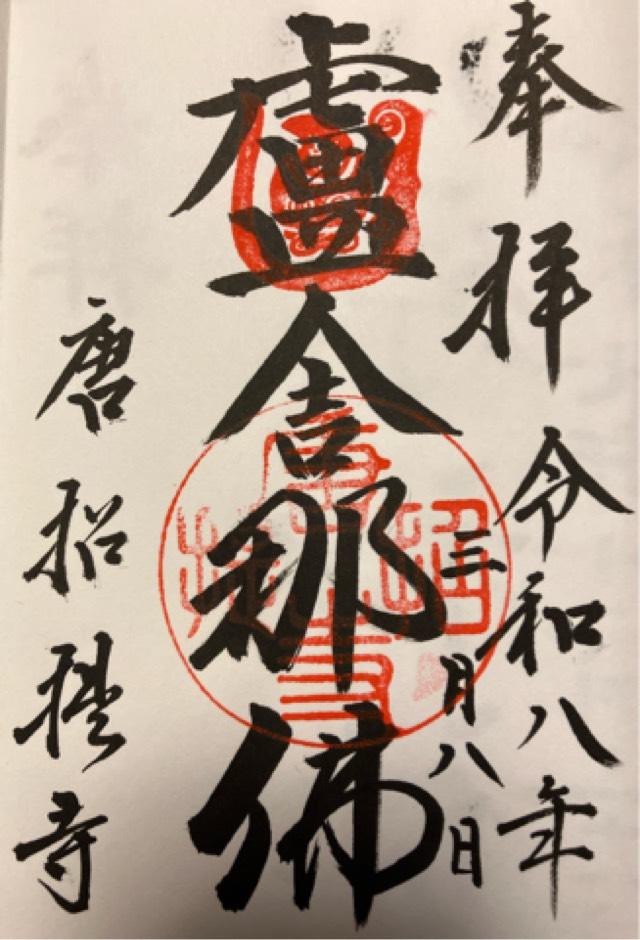 奉拝
令和八年
三月八日
盧舎那佛
唐招提寺
唐招提寺